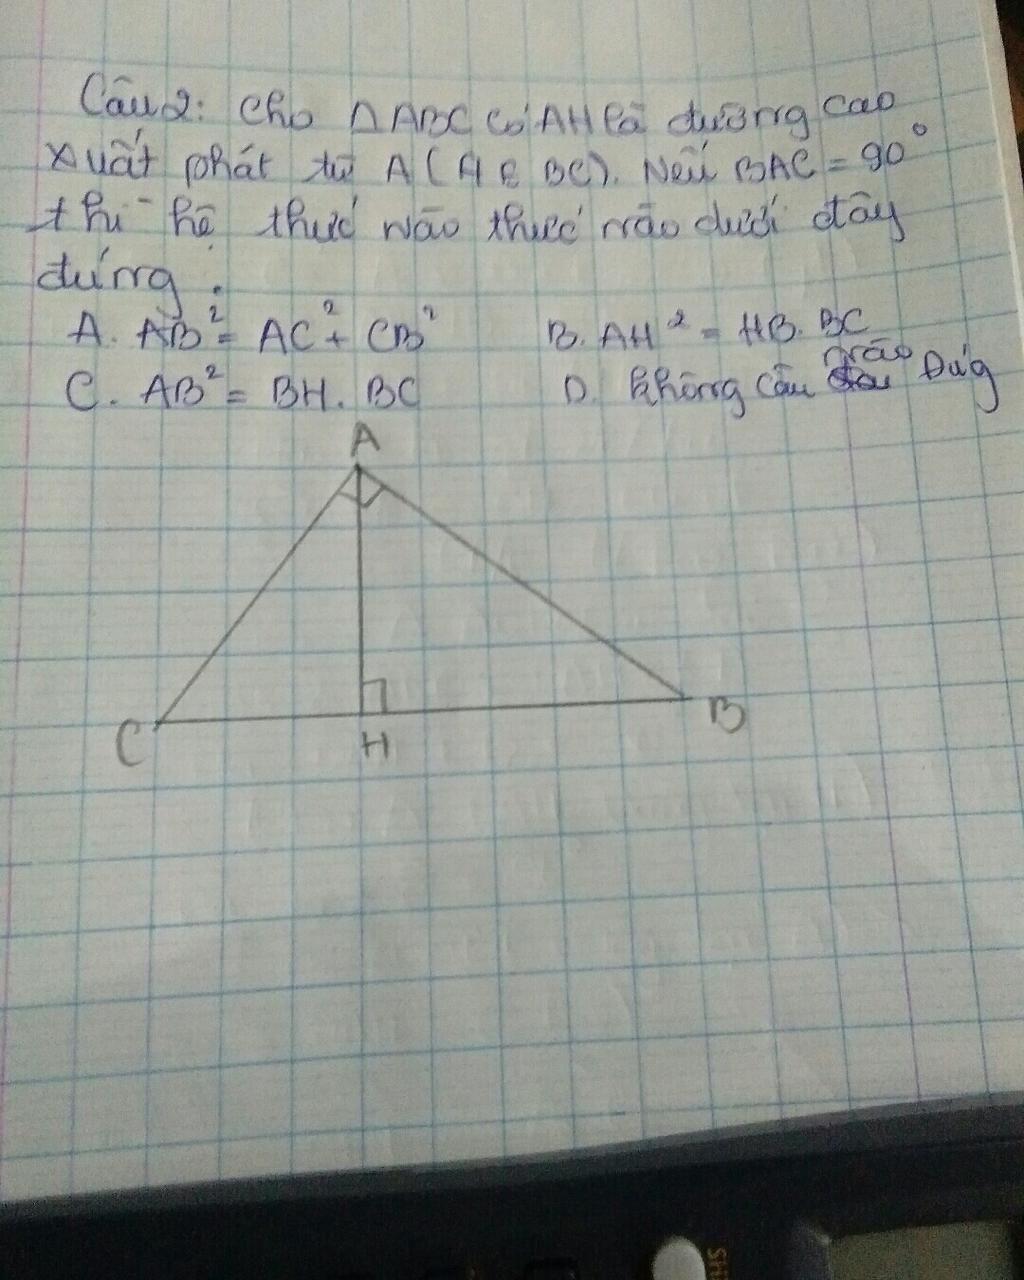 Câu 2: Cho ΔABC có AH là đường cao
xuất phát từ A (H ∈ BC). Nếu BAC = 90°
thì hệ thức nào thức nào dưới đây
đúng.
A. AB² = AC² + CB² B. AH² = HB. BC
C. AB² = BH. BC D. Không câu nào Đúg
A
C
H
B
SH